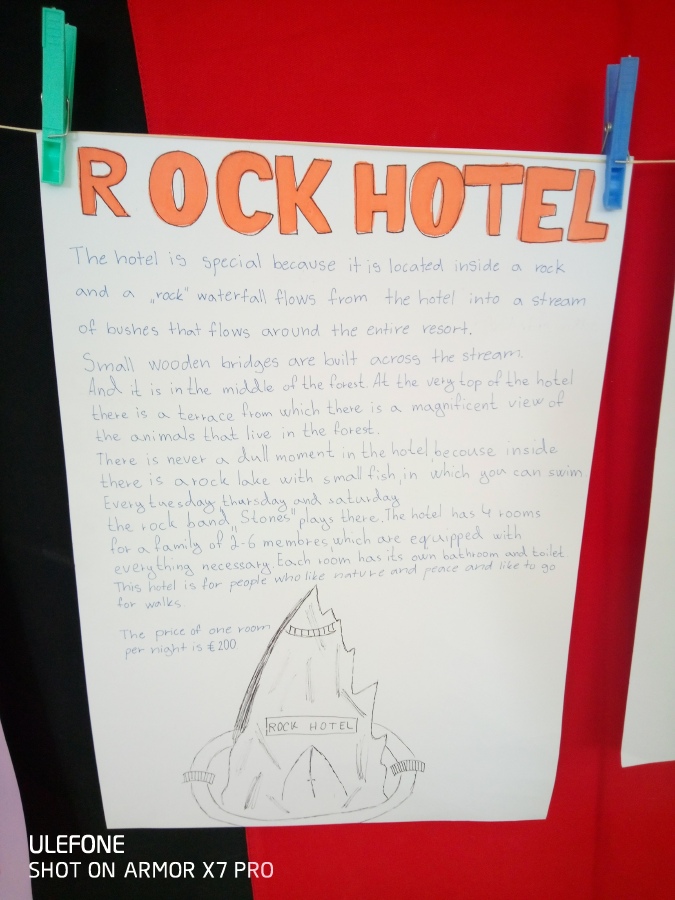 ROCK HOTEL
The hotel is special because it is located inside a rock
and a „rock" waterfall flows from the hotel into a stream
of bushes that flows around the entire resort.
Small wooden bridges are built across the stream.
And it is in the middle of the forest. At the very top of the hotel
there is a terrace from which there is a magnificent view of
the animals that live in the forest.
There is never a dull moment in the hotel, becouse inside
there is a rock lake with small fish, in which you can swim
Every tuesday, thursday and saturday
the rock band „Stones" plays there. The hotel has 4 rooms
for a family of 2-6 membres, which are equipped with
everything necessary. Each room has its own bathroom and toilet
This hotel is for people who like nature and peace and like to go
for walks.
The price of one room
per night is €200
ROCK HOTEL
ULEFONE
SHOT ON ARMOR X7 PRO